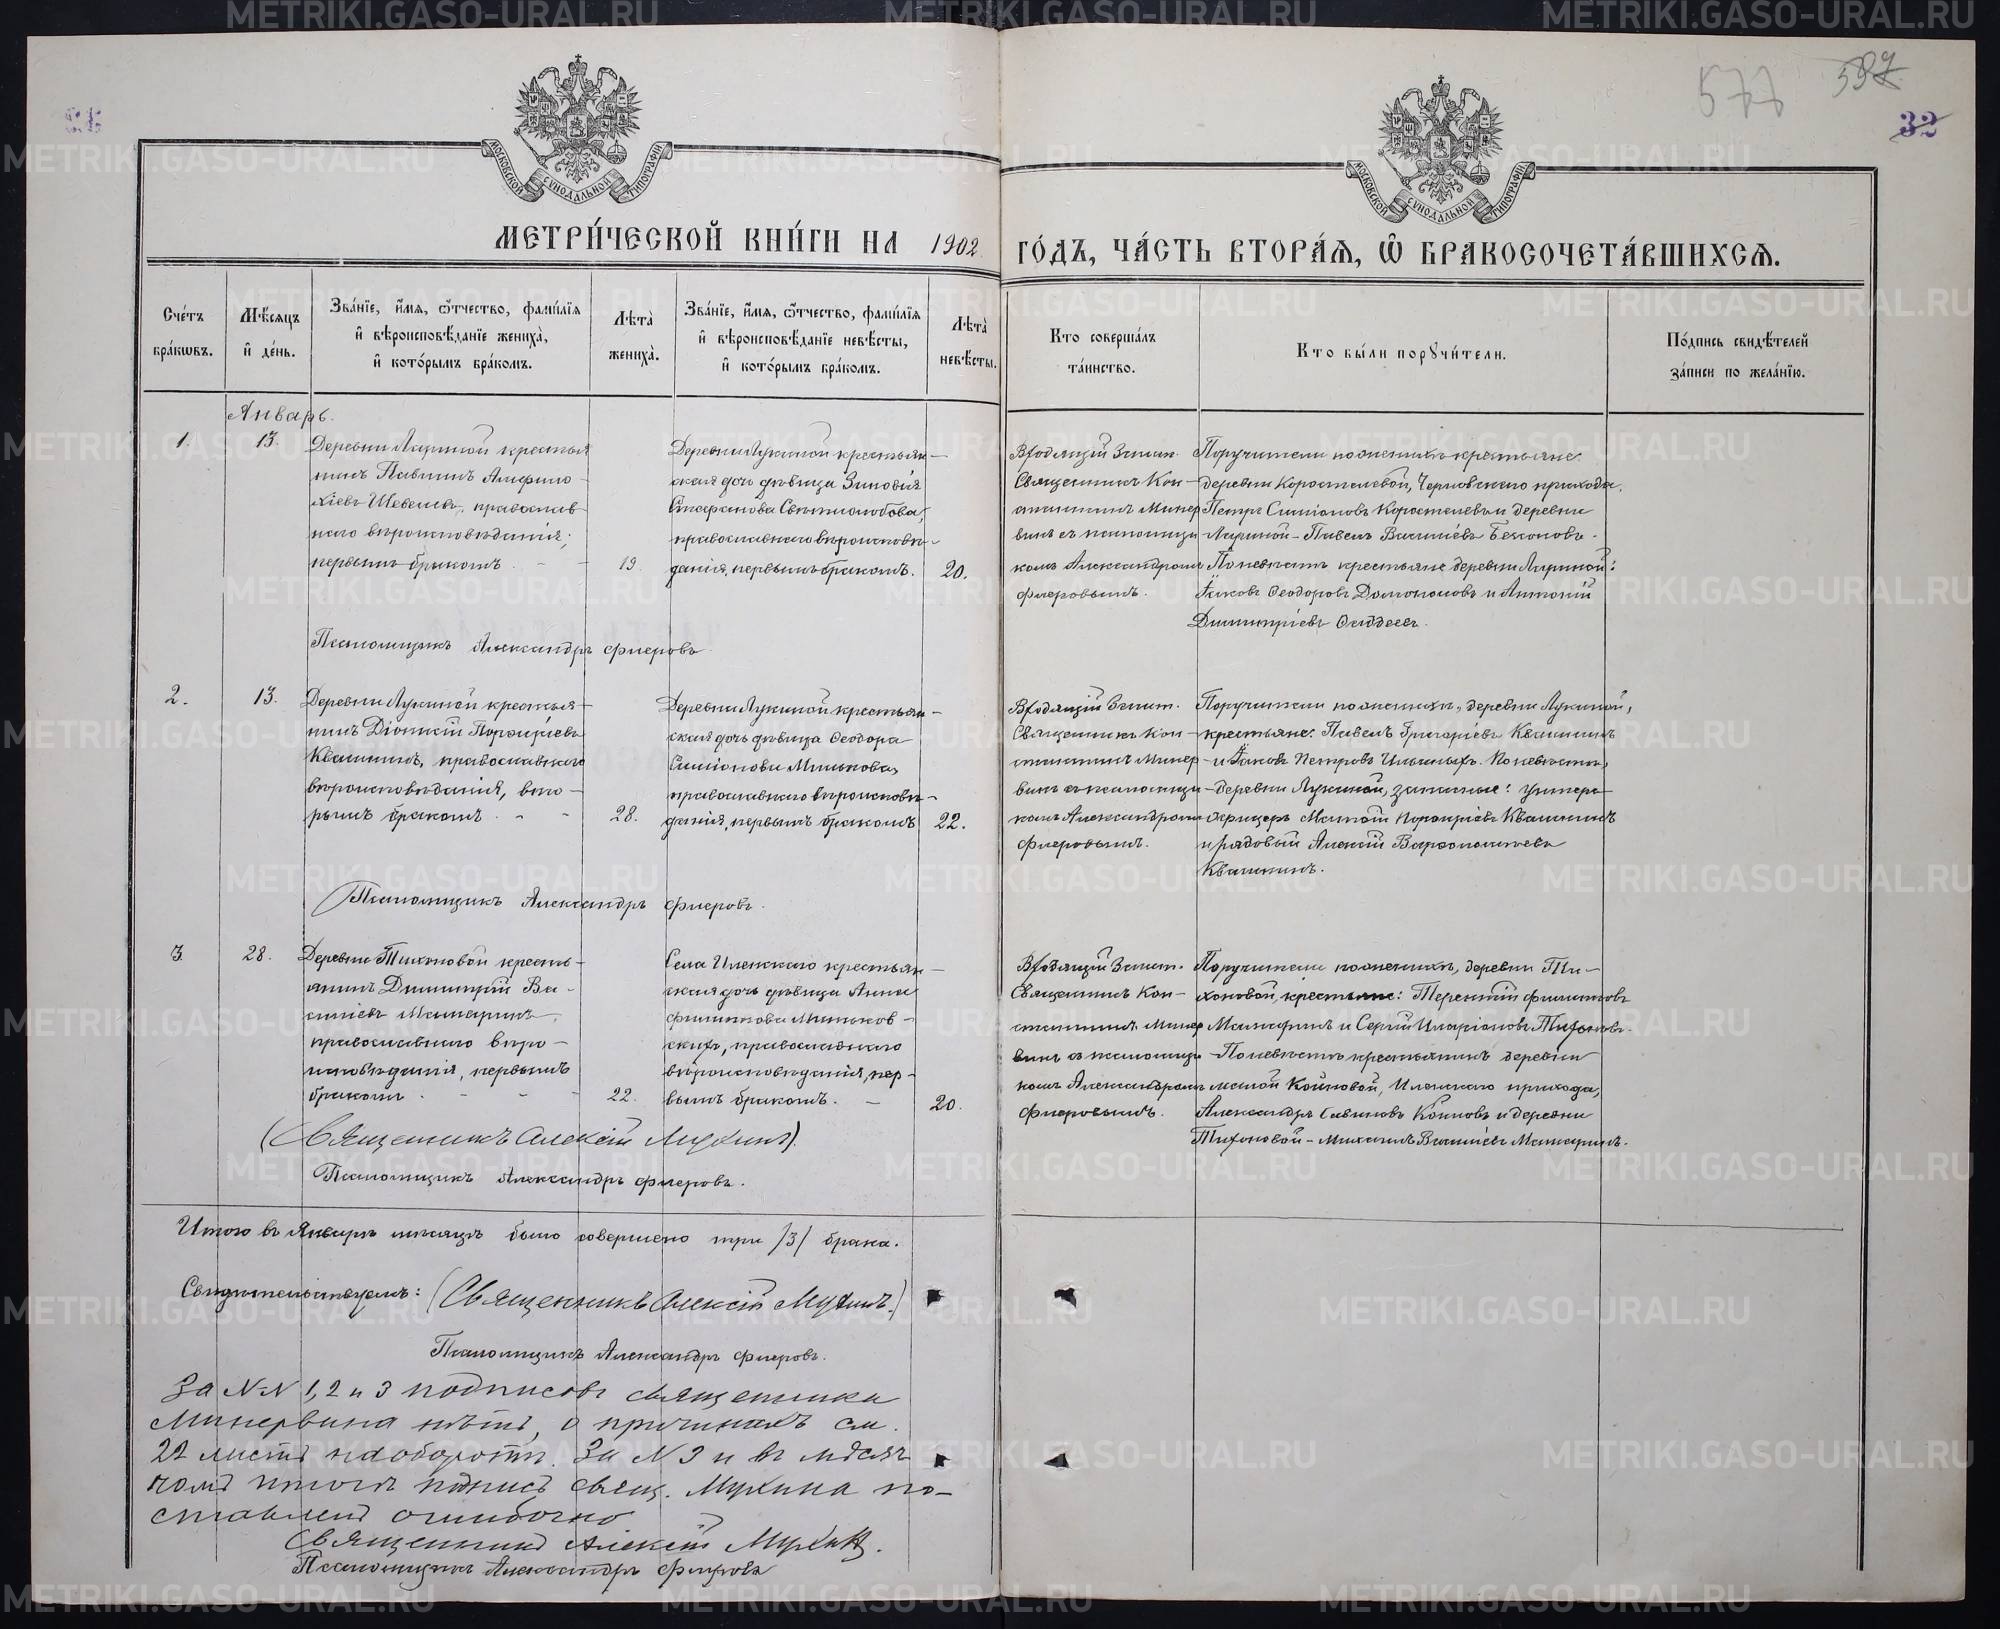 577
597
32
МОСКОВСКОЙ СѴНОДАЛЬНОЙ ТИПОГРАФІИ
МОСКОВСКОЙ СѴНОДАЛЬНОЙ ТИПОГРАФІИ
МЕТРИ́ЧЕСКОЙ КНИ́ГИ НА 1902 ГО́ДЪ, ЧА́СТЬ ВТОРА́Ѧ, Ѽ БРАКОСОЧЕТА́ВШИХСѦ.
Сче́тъ бра́кѡвъ.
Мѣ́сяцъ и҆ де́нь.
Зва́нїе, и҆́мя, ѻ҆́тчество, фами́лїя
и҆ вѣроисповѣ́данїе жениха̀,
и҆ кото́рымъ бра́комъ.
Лѣта̀ жениха̀.
Зва́нїе, и҆́мя, ѻ҆́тчество, фами́лїя
и҆ вѣроисповѣ́данїе невѣ́сты,
и҆ кото́рымъ бра́комъ.
Лѣта̀ невѣ́сты.
Кто соверша́лъ та́инство.
Кто бы́ли порꙋчи́тели.
По́дпись свидѣ́телей за́писи по жела́нїю.
Январь.
1.
13.
Деревни Лариной крестья
нинъ Павлинъ Амфило
хіевъ Шевелевъ, православ
наго вѣроисповѣданія,
первымъ бракомъ
19.
Деревни Лукиной крестьян-
ская дочь дѣвица Зиновія
Стефанова Свѣтлолобова,
православнаго вѣроисповѣ-
данія, первымъ бракомъ.
20.
Священникъ Кон-
стантинъ Минер
винъ съ псаломщи
комъ Александромъ
Флеровымъ.
Поручители по женихѣ крестьяне:
деревни Коростелевой, Черновскаго прихода,
Петръ Симіоновъ Коростелевъ и деревни
Лариной - Павелъ Василіевъ
По невѣстѣ крестьяне деревни Лариной:
Іаковъ Ѳеодоровъ и Антоній
Димитріевъ
Псаломщикъ Александръ Флеровъ
2.
13.
Деревни Лукиной крестья-
нинъ Діонисій Порфиріевъ
Квашнинъ, православнаго
вѣроисповѣданія, вто-
рымъ бракомъ
28.
Деревни Лукиной крестьян-
ская дочь дѣвица Ѳеодора
Симіонова Минькова,
православнаго вѣроисповѣ-
данія, первымъ бракомъ
22.
Священникъ Кон-
стантинъ Минер
винъ съ псаломщи
комъ Александромъ
Флеровымъ.
Поручители по женихѣ, деревни Лукиной,
крестьяне: Павелъ Григоріевъ Квашнинъ
и Іаковъ Петровъ Ильиныхъ. По невѣстѣ,
деревни Лукиной, запасные: унтеръ
офицеръ Порфиріевъ Квашнинъ
и рядовый Алексій Варфоломеевъ
Квашнинъ.
Псаломщикъ Александръ Флеровъ.
3.
28.
Деревни Тихоновой кресть-
янинъ Димитрій Ва-
силіевъ Мамаринъ,
православнаго вѣро-
исповѣданія, первымъ
бракомъ
22.
Села Иленскаго крестьян-
ская дочь дѣвица Анна
Филиппова Миньков-
скихъ, православнаго
вѣроисповѣданія, пер-
вымъ бракомъ.
20.
Священникъ Кон-
стантинъ Минер
винъ съ псаломщи
комъ Александромъ
Флеровымъ.
Поручители по женихѣ, деревни Ти-
хоновой, крестьяне: Терентій Филипповъ
и Сергій Иларіоновъ Тихоновъ.
По невѣстѣ крестьянинъ деревни
малой Койновой, Иленскаго прихода,
Александръ Савиновъ Койновъ и деревни
Тихоновой - Михаилъ Василіевъ Мамаринъ.
(Священникъ Алексій Мухинъ).
Псаломщикъ Александръ Флеровъ.
Итого въ Январѣ мѣсяцѣ было совершено три /3/ брака.
Свидѣтельствуемъ: (Священникъ Алексій Мухинъ.)
Псаломщикъ Александръ Флеровъ.
За №№ 1, 2 и 3 подписовъ священника
Минервина нѣтъ, о причинахъ см.
22 листъ на оборотѣ. За № 3 и въ мѣсяч
номъ итогѣ подпись свящ. Мухина по-
ставлена ошибочно
Священникъ Алексій Мухинъ.
Псаломщикъ Александръ Флеровъ
METRIKI.GASO-URAL.RU